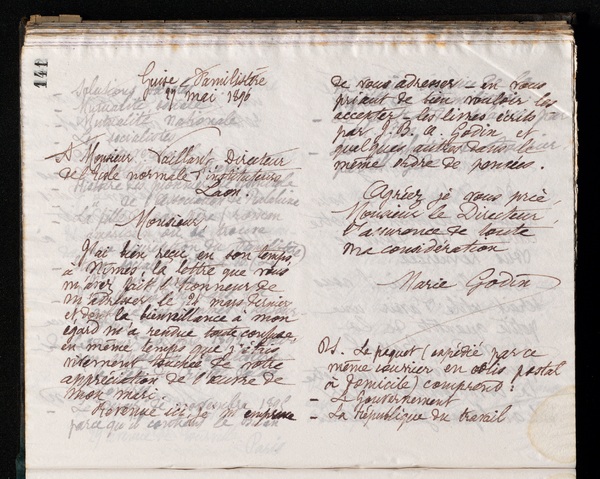 141
Guise Familistère
27 mai 1896
A Monsieur Vaillant, Directeur
de l'école normale d'instituteurs
Laon
Monsieur
J'ai bien reçu en son temps,
à Nîmes la lettre que vous
m'avez fait l'honneur de
m'adresser le 21 mars dernier
et la bienveillance à mon
égard m'a rendue toute confuse,
en même temps que j'étais
vivement touchée de votre
appréciation de l'œuvre de
mon mari.
Revenue ici, je m'empresse
de vous adresser en vous
priant de bien vouloir les
accepter les livres écrits
par J. B. A. Godin et
quelques autres dans le
même ordre de pensées.
Agréez je vous prie,
Monsieur le Directeur,
l'assurance de toute
ma considération
Marie Godin
PS. Le paquet (expédié par ce
même courrier en colis postal
à domicile) comprend :
- Le Gouvernement
- La République du travail